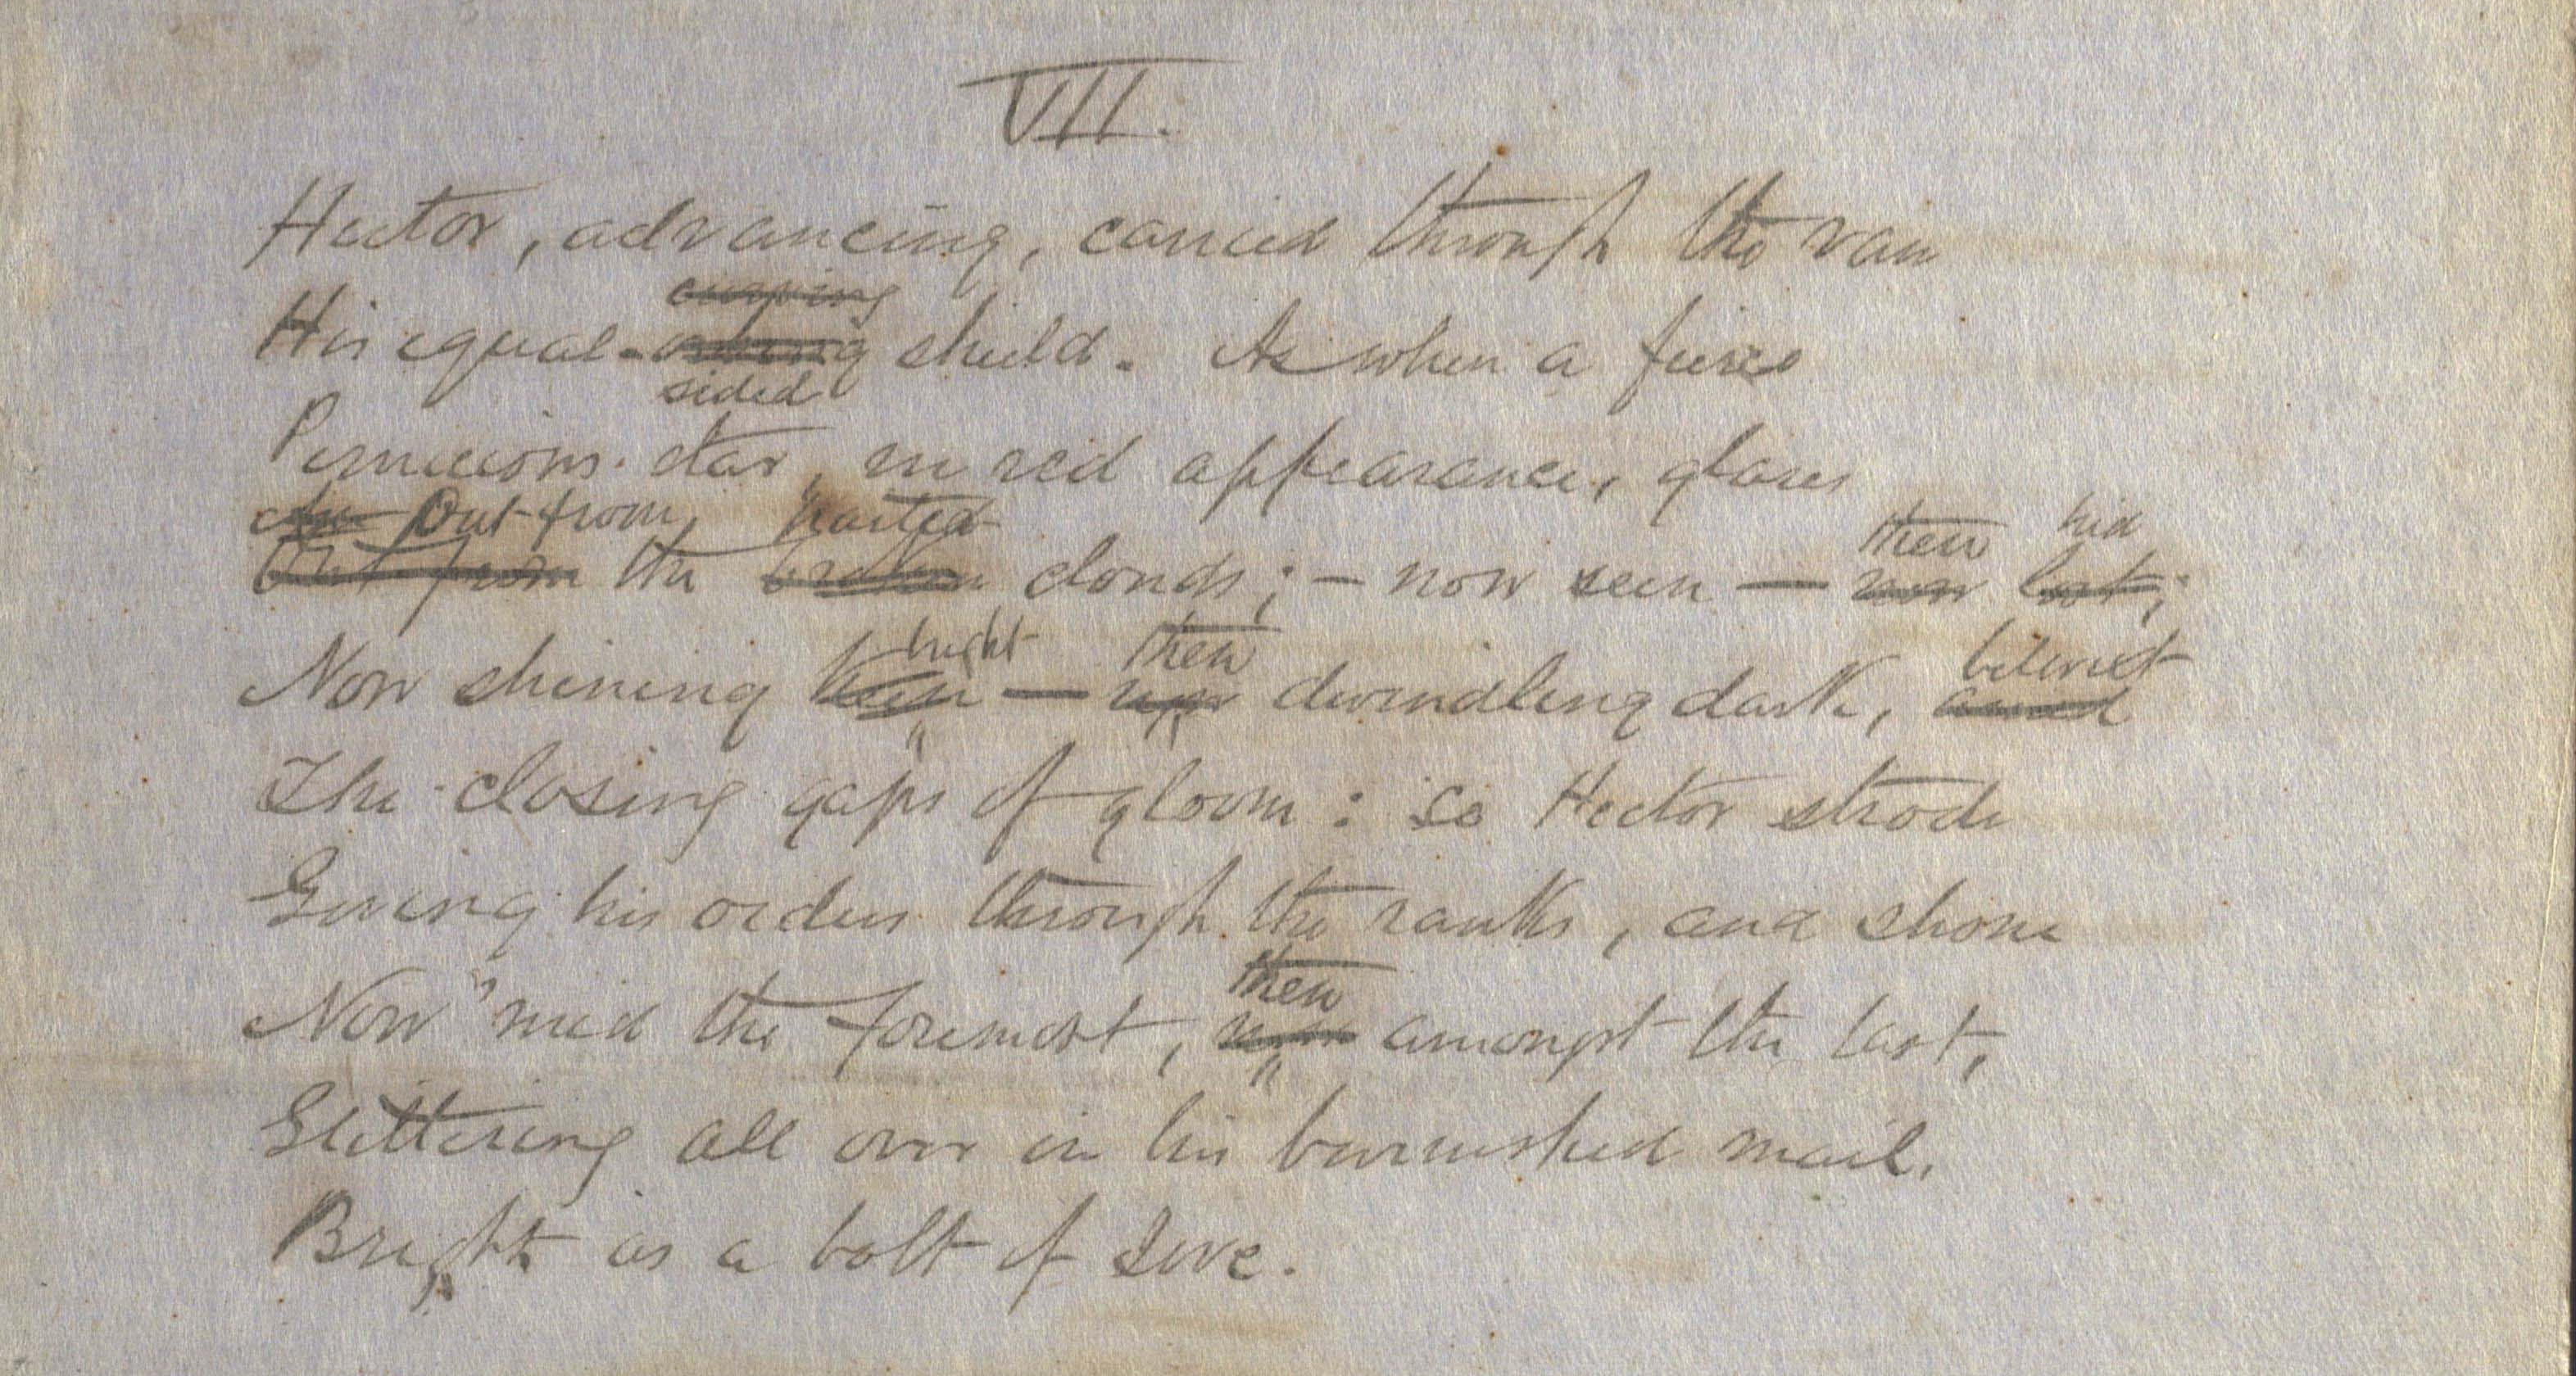 VII.
Hector, advancing, carried through the van
curving
His equal-orbing shield. As when a fierce
sided
Pernicious star, in red appearance, glares
Out from parted
then hid
Out from the broken clouds; - now seen — now lost;
bright then betwixt
Now shining keen — now dwindling dark, amid
The closing gaps of gloom: so Hector strode
Giving his orders through the ranks, and shone
then
Now 'mid the foremost, now amongst the last,
Glittering all over in his burnished mail,
Bright as a bolt of Jove.